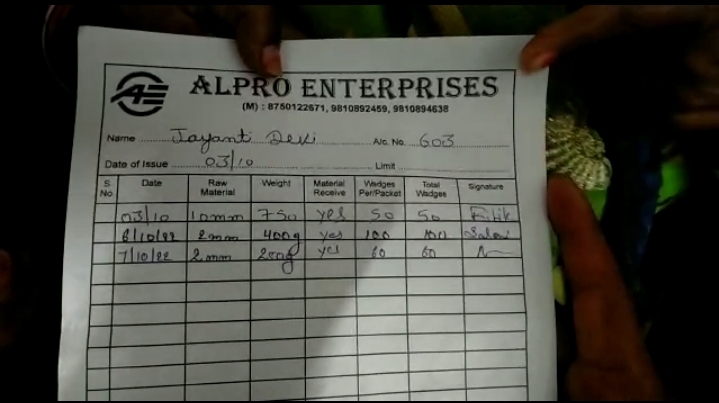 AE
ALPRO ENTERPRISES
(M) : 8750122671, 9810892459, 9810894638
Name Jayanti Devi A/c. No. 603
Date of Issue 03/10 Limit
S No Date Raw Material Weight Material Receive Wadges Per/Packet Total Wadges Signature
03/10 10mm 750 yes 50 50
6/10/22 2mm 400g yes 100 100
7/10/22 2mm 200g yes 60 60